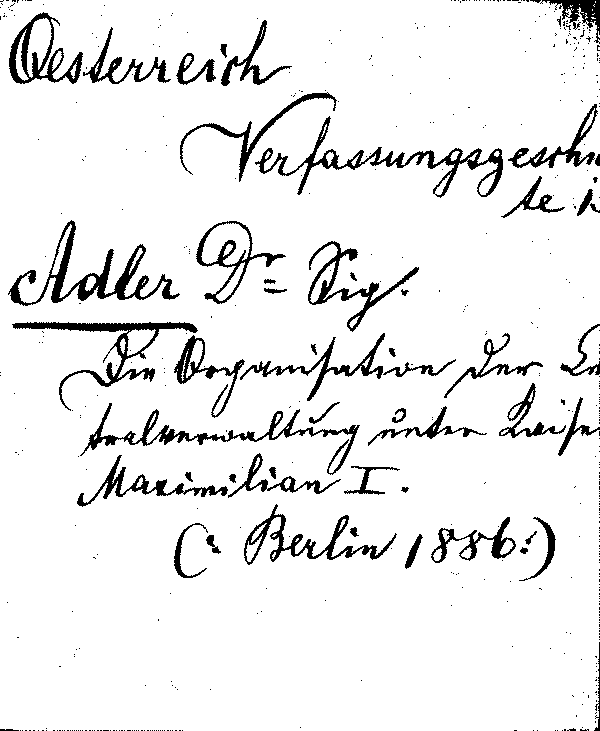 Oesterreich
Verfassungsgeschich
te i
Adler Dr. Sig.
Die Organisation der Ce
tralverwaltung unter Kaise
Maximilian I.
(: Berlin 1886:)